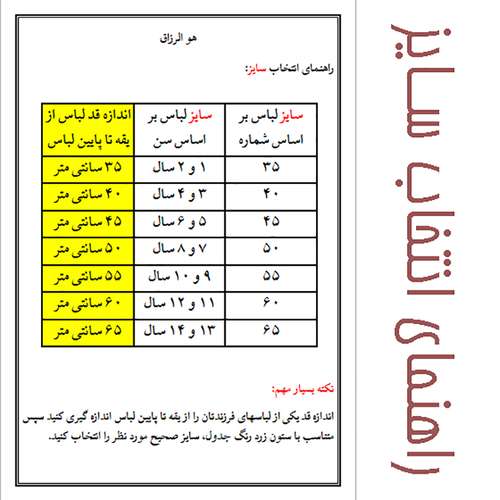 هو الرزاق
راهنمای انتخاب سایز:
سایز لباس بر اساس شماره	سایز لباس بر اساس سن	اندازه قد لباس از یقه تا پایین لباس
۳۵	۱ و ۲ سال	۳۵ سانتی متر
۴۰	۳ و ۴ سال	۴۰ سانتی متر
۴۵	۵ و ۶ سال	۴۵ سانتی متر
۵۰	۷ و ۸ سال	۵۰ سانتی متر
۵۵	۹ و ۱۰ سال	۵۵ سانتی متر
۶۰	۱۱ و ۱۲ سال	۶۰ سانتی متر
۶۵	۱۳ و ۱۴ سال	۶۵ سانتی متر
نکته بسیار مهم:
اندازه قد یکی از لباسهای فرزندتان را از یقه تا پایین لباس اندازه گیری کنید سپس
متناسب با ستون زرد رنگ جدول، سایز صحیح مورد نظر را انتخاب کنید.
راهنمای انتخاب سایز